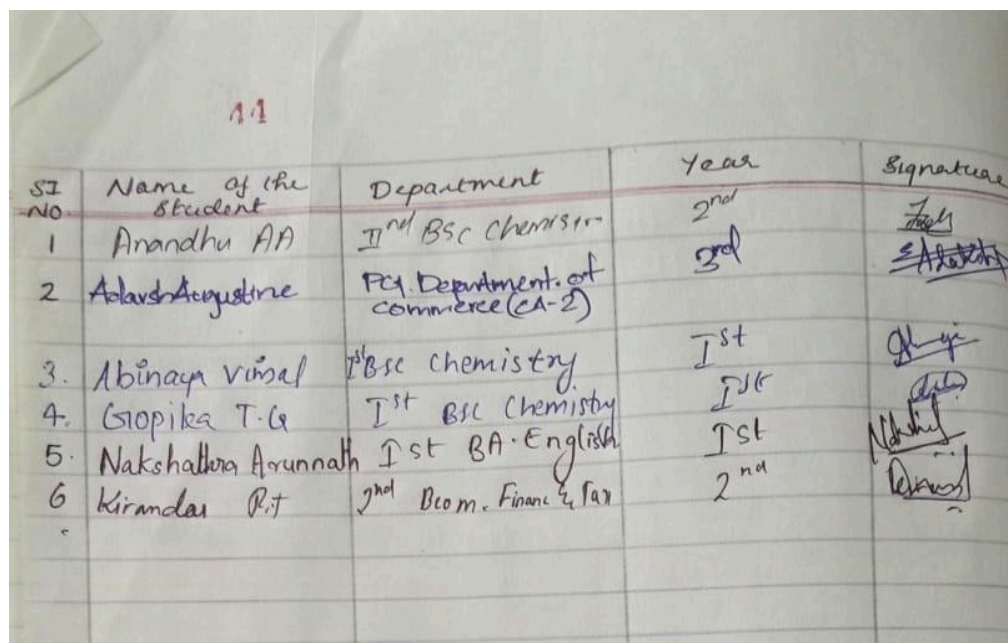 11
SI No. Name of the Student Department Year Signature
1 Anandhu AA IInd BSc Chemistry 2nd
2 Adarsh Augustine PG. Department. of commerce (CA-2) 3rd
3. Abinaya vimal Ist BSc Chemistry Ist
4. Gopika T.G Ist BSc Chemistry Ist
5. Nakshathra Arunnath Ist BA. English Ist
6 Kirandas R.T 2nd Bcom. Financ & Tax 2nd